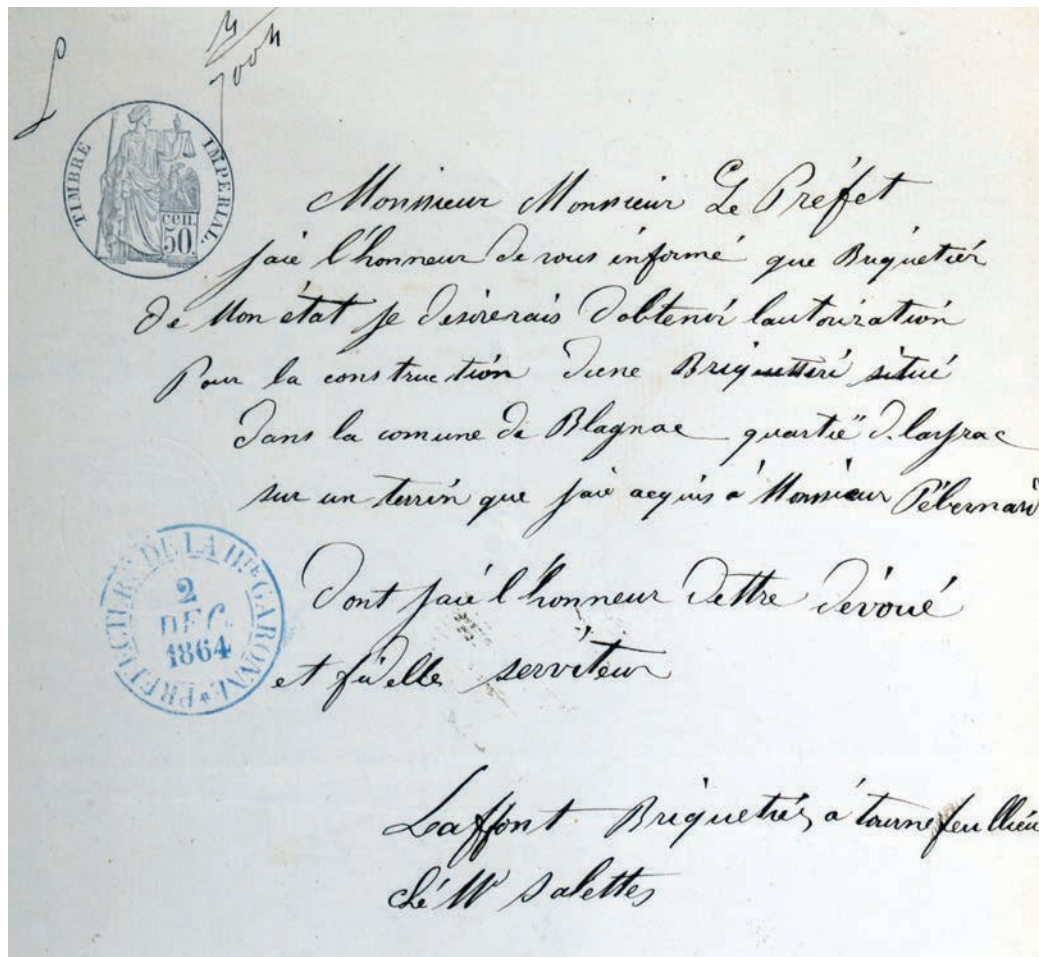 4
7004
TIMBRE IMPERIAL.
cen.
50
Monsieur Monsieur Le Préfet
jaie l'honneur de vous informé que Briquetiér
de Mon état je desirerais d'obtenir lautorization
Pour la construction d'une Briquetteri situé
dans la comune de Blagnac quartié
sur un terrin que jaie acquis à Monsieur Pébernard
PREFECTURE DE LA HTE GARONNE
2
DEC.
1864
dont jaie l'honneur dettre dévoué
et fidelle serviteur
Laffont Briquetiér à tournefeullieu
ché Mr Salettes